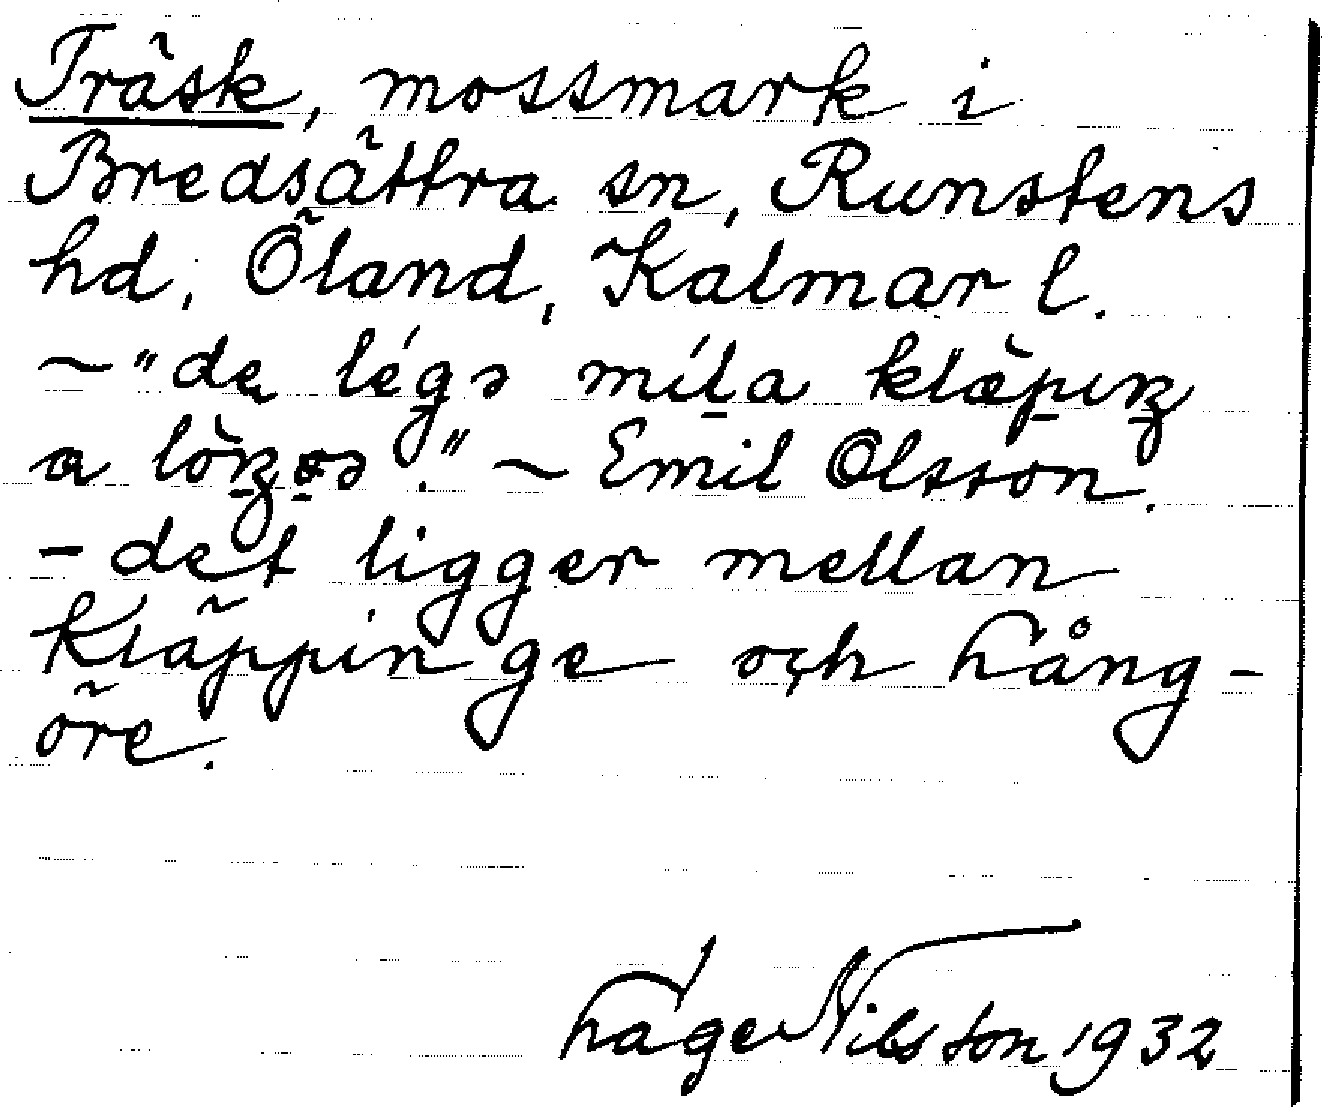 Träsk, mossmark i
Bredsättra sn, Runstens
hd, Öland, Kalmar l.
~"de légə míla klæ̀pıŋ
a lòŋøə." ~ Emil Olsson.
- det ligger mellan
Kläppinge och Lång-
öre.
Nilsson 1932